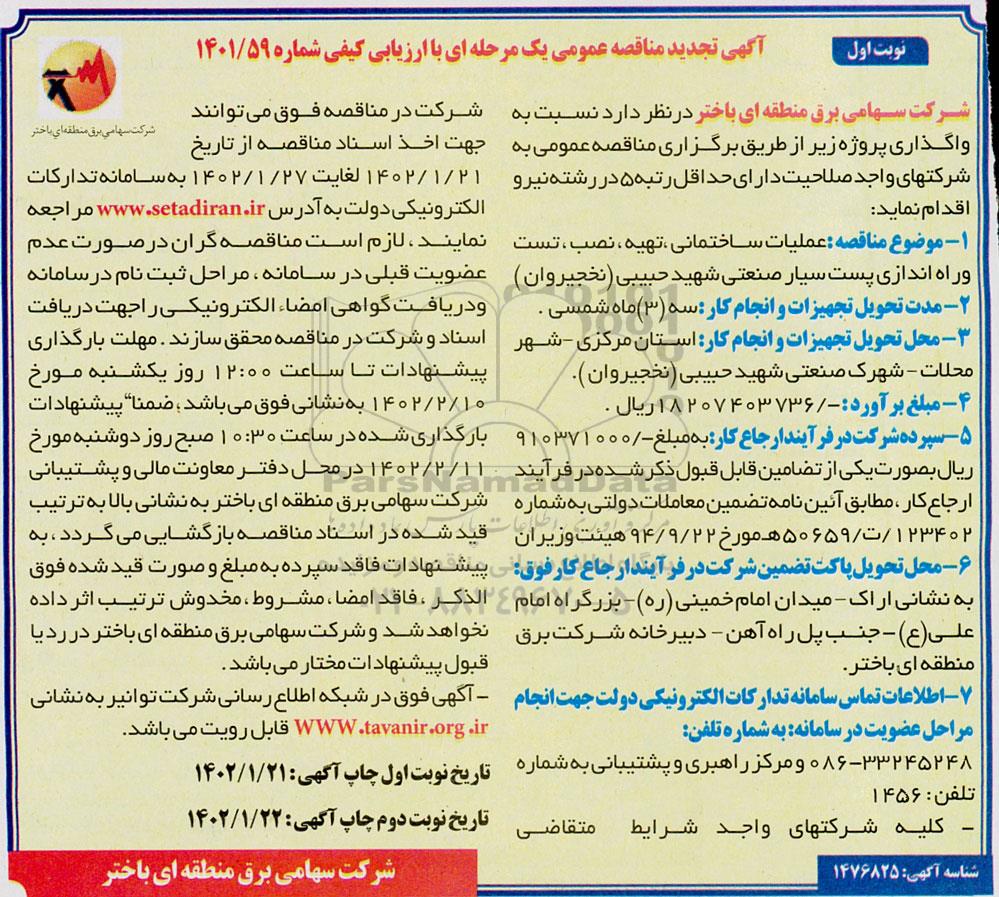 نوبت اول
آگهی تجدید مناقصه عمومی یک مرحله ای با ارزیابی کیفی شماره ۱۴۰۱/۵۹
شرکت سهامی برق منطقه ای باختر
شرکت سهامی برق منطقه ای باختر درنظر دارد نسبت به
واگذاری پروژه زیر از طریق برگزاری مناقصه عمومی به
شرکتهای واجد صلاحیت دارای حداقل رتبه ۵ در رشته نیرو
اقدام نماید:
۱- موضوع مناقصه: عملیات ساختمانی، تهیه، نصب، تست
و راه اندازی پست سیار صنعتی شهید حبیبی (نخجیروان)
۲- مدت تحویل تجهیزات و انجام کار: سه (۳) ماه شمسی.
۳- محل تحویل تجهیزات و انجام کار: استان مرکزی - شهر
محلات - شهرک صنعتی شهید حبیبی (نخجیروان).
۴- مبلغ برآورد: -/۱۸۲۰۷۴۰۳۷۳۶ ریال.
۵- سپرده شرکت در فرآیند ارجاع کار: به مبلغ -/۹۱۰۳۷۱۰۰۰
ریال بصورت یکی از تضامین قابل قبول ذکر شده در فرآیند
ارجاع کار، مطابق آئین نامه تضمین معاملات دولتی به شماره
۱۲۳۴۰۲/ت/۵۰۶۵۹هـ مورخ ۹۴/۹/۲۲ هیئت وزیران
۶- محل تحویل پاکت تضمین شرکت در فرآیند ارجاع کار فوق:
به نشانی اراک - میدان امام خمینی (ره) - بزرگراه امام
علی (ع) - جنب پل راه آهن - دبیرخانه شرکت برق
منطقه ای باختر.
۷- اطلاعات تماس سامانه تدارکات الکترونیکی دولت جهت انجام
مراحل عضویت در سامانه: به شماره تلفن:
۰۸۶-۳۳۲۴۵۲۴۸ و مرکز راهبری و پشتیبانی به شماره
تلفن: ۱۴۵۶
- کلیه شرکتهای واجد شرایط متقاضی
شرکت در مناقصه فوق می توانند
جهت اخذ اسناد مناقصه از تاریخ
۱۴۰۲/۱/۲۱ لغایت ۱۴۰۲/۱/۲۷ به سامانه تدارکات
الکترونیکی دولت به آدرس www.setadiran.ir مراجعه
نمایند، لازم است مناقصه گران در صورت عدم
عضویت قبلی در سامانه، مراحل ثبت نام در سامانه
و دریافت گواهی امضاء الکترونیکی را جهت دریافت
اسناد و شرکت در مناقصه محقق سازند. مهلت بارگذاری
پیشنهادات تا ساعت ۱۲:۰۰ روز یکشنبه مورخ
۱۴۰۲/۲/۱۰ به نشانی فوق می باشد؛ ضمنا" پیشنهادات
بارگذاری شده در ساعت ۱۰:۳۰ صبح روز دوشنبه مورخ
۱۴۰۲/۲/۱۱ در محل دفتر معاونت مالی و پشتیبانی
شرکت سهامی برق منطقه ای باختر به نشانی بالا به ترتیب
قید شده در اسناد مناقصه بازگشایی می گردد، به
پیشنهادات فاقد سپرده به مبلغ و صورت قید شده فوق
الذکر، فاقد امضا، مشروط، مخدوش ترتیب اثر داده
نخواهد شد و شرکت سهامی برق منطقه ای باختر در رد یا
قبول پیشنهادات مختار می باشد.
- آگهی فوق در شبکه اطلاع رسانی شرکت توانیر به نشانی
WWW.tavanir.org.ir قابل رویت می باشد.
تاریخ نوبت اول چاپ آگهی: ۱۴۰۲/۱/۲۱
تاریخ نوبت دوم چاپ آگهی: ۱۴۰۲/۱/۲۲
شناسه آگهی: ۱۴۷۶۸۲۵
شرکت سهامی برق منطقه ای باختر
ParsNamadData